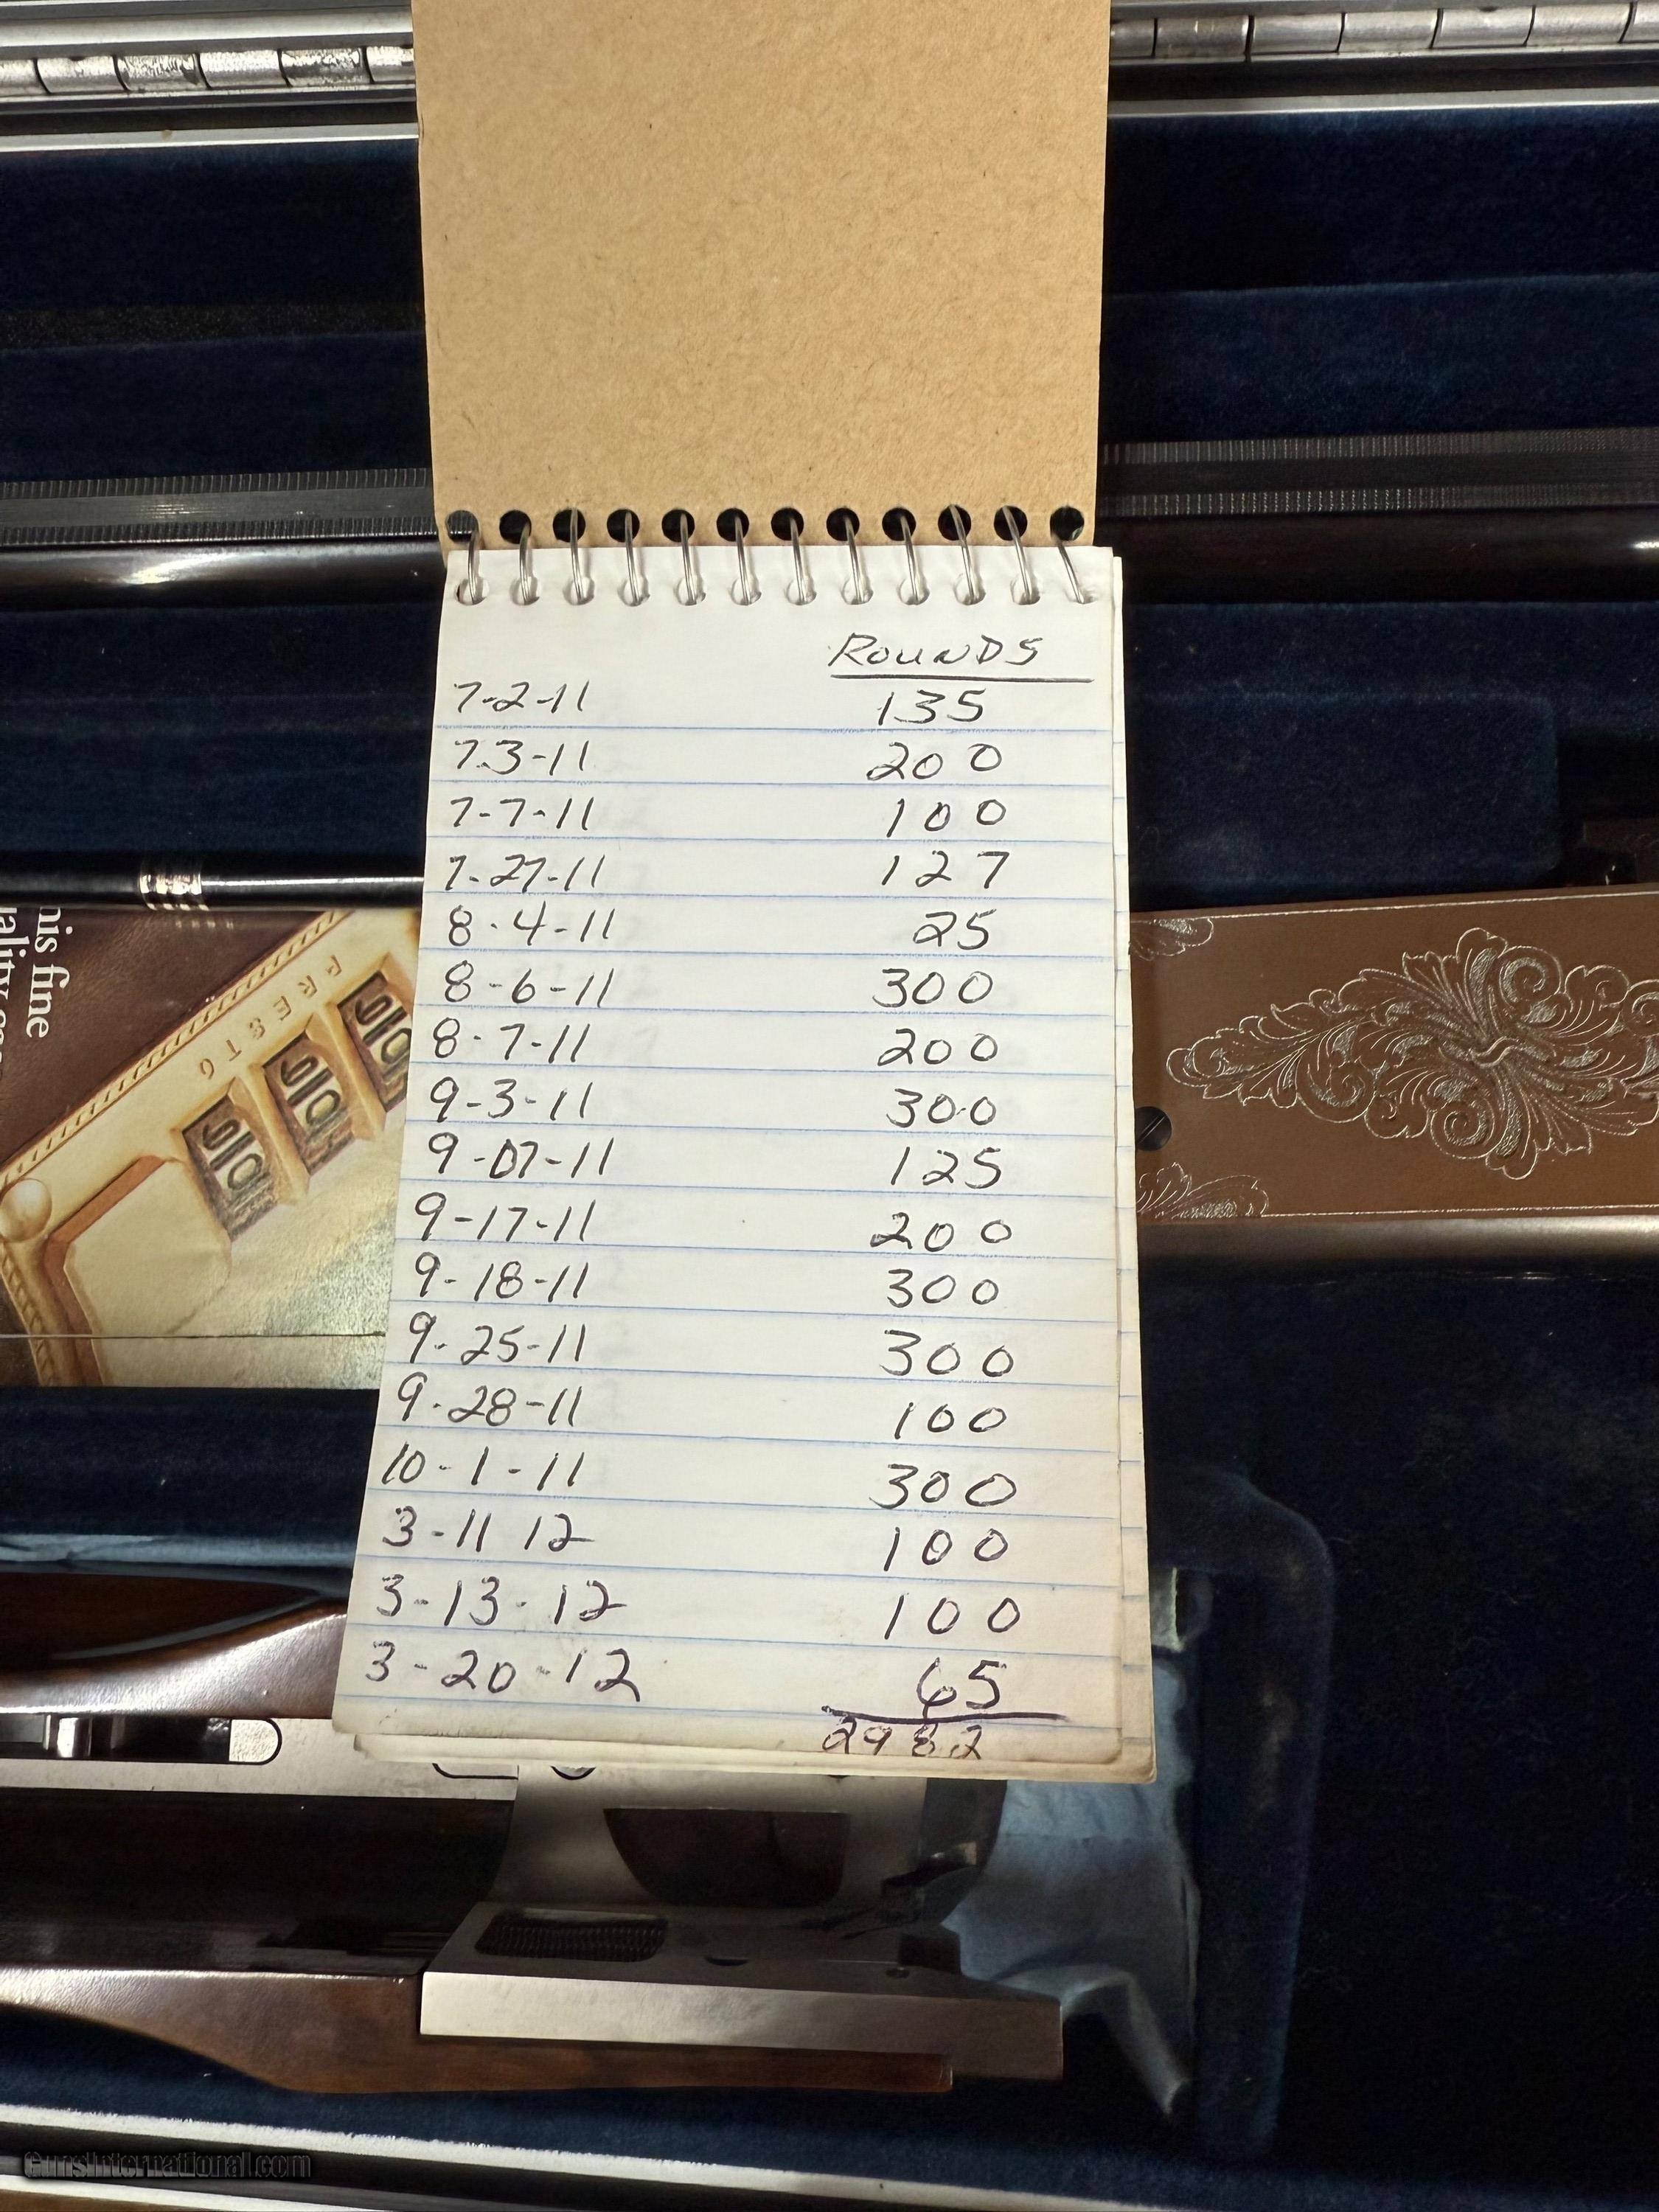 ROUNDS
7-2-11 135
7-3-11 200
7-7-11 100
7-27-11 127
8-4-11 25
8-6-11 300
8-7-11 200
9-3-11 300
9-07-11 125
9-17-11 200
9-18-11 300
9-25-11 300
9-28-11 100
10-1-11 300
3-11 12 100
3-13-12 100
3-20-12 65
2982
his fine
PRESTO
GunsInternational.com